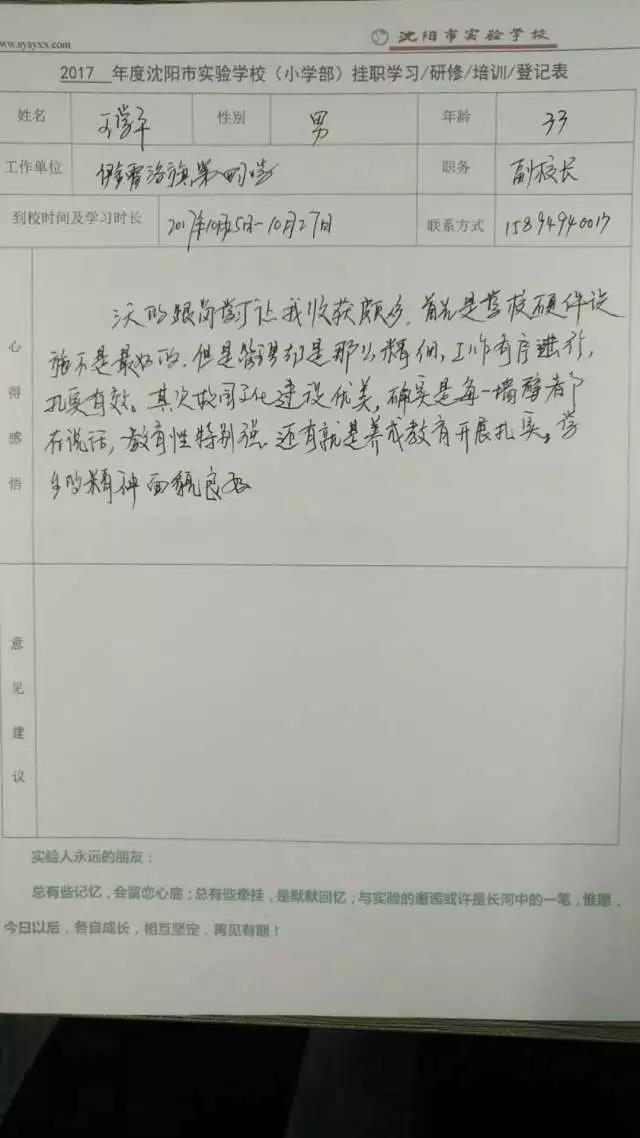 www.sysyxx.cn
沈阳市实验学校
2017 年度沈阳市实验学校（小学部）挂职学习/研修/培训/登记表
姓名 学军 性别 男 年龄 33
工作单位 伊金霍洛旗第四小学 职务 副校长
到校时间及学习时长 2017年10月25日-10月27日 联系方式 15894940017
心得感悟
三天的跟岗学习让我收获颇多，首先是学校硬件设
施不是最好的，但是管理却是那么精细，工作有序进行，
扎实有效。其次校园文化建设优美，确实是每一墙壁都
在说话，教育性特别强 还有就是养成教育开展扎实。学
生的精神面貌良好
意见建议
实验人永远的朋友：
总有些记忆，会留恋心底；总有些牵挂，是默默回忆；与实验的邂逅或许是长河中的一笔，惟愿，
今日以后，各自成长，相互坚定，再见有期！